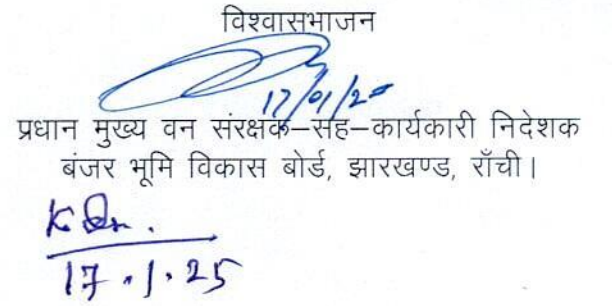 विश्वासभाजन
17/01/20
प्रधान मुख्य वन संरक्षक–सह–कार्यकारी निदेशक
बंजर भूमि विकास बोर्ड, झारखण्ड, राँची।
17.1.25